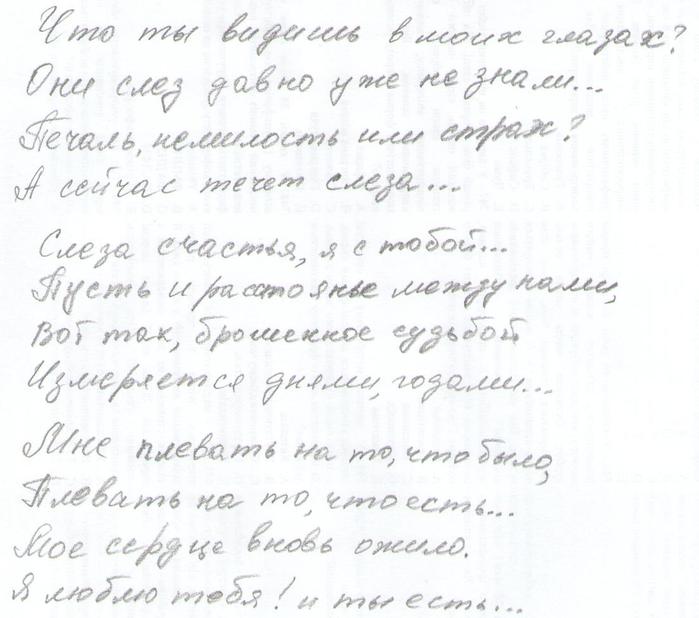 Что ты видишь в моих глазах?
Они слез давно уже не знали...
Печаль, немилость или страх?
А сейчас течет слеза...
Слеза счастья, я с тобой...
Пусть и расстоянье между нами,
Вот так, брошенное судьбой
Измеряется днями, годами...
Мне плевать на то, что было,
Плевать на то, что есть...
Мое сердце вновь ожило.
Я люблю тебя! и ты есть...